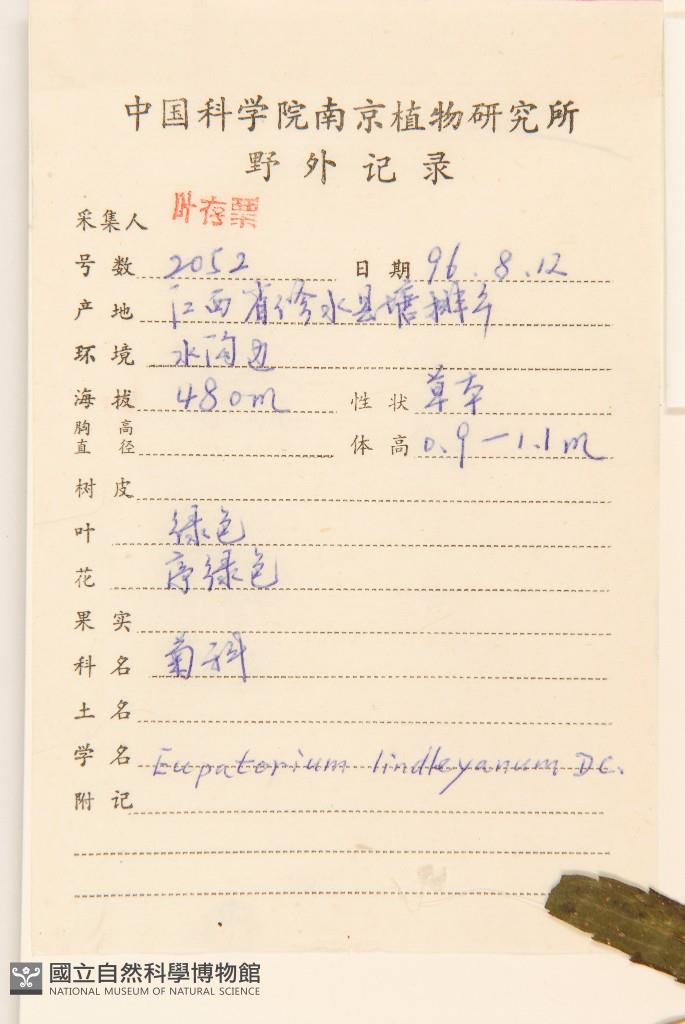 中国科学院南京植物研究所
野外记录
采集人 叶存粟
号数 2052 日期 96.8.12
产地 江西省修水县塘排乡
环境 水沟边
海拔 480m 性状 草本
胸高直径 体高 0.9—1.1m
树皮
叶 绿色
花 序绿色
果实
科名 菊科
土名
学名 Eupatorium lindleyanum DC.
附记
國立自然科學博物館
NATIONAL MUSEUM OF NATURAL SCIENCE